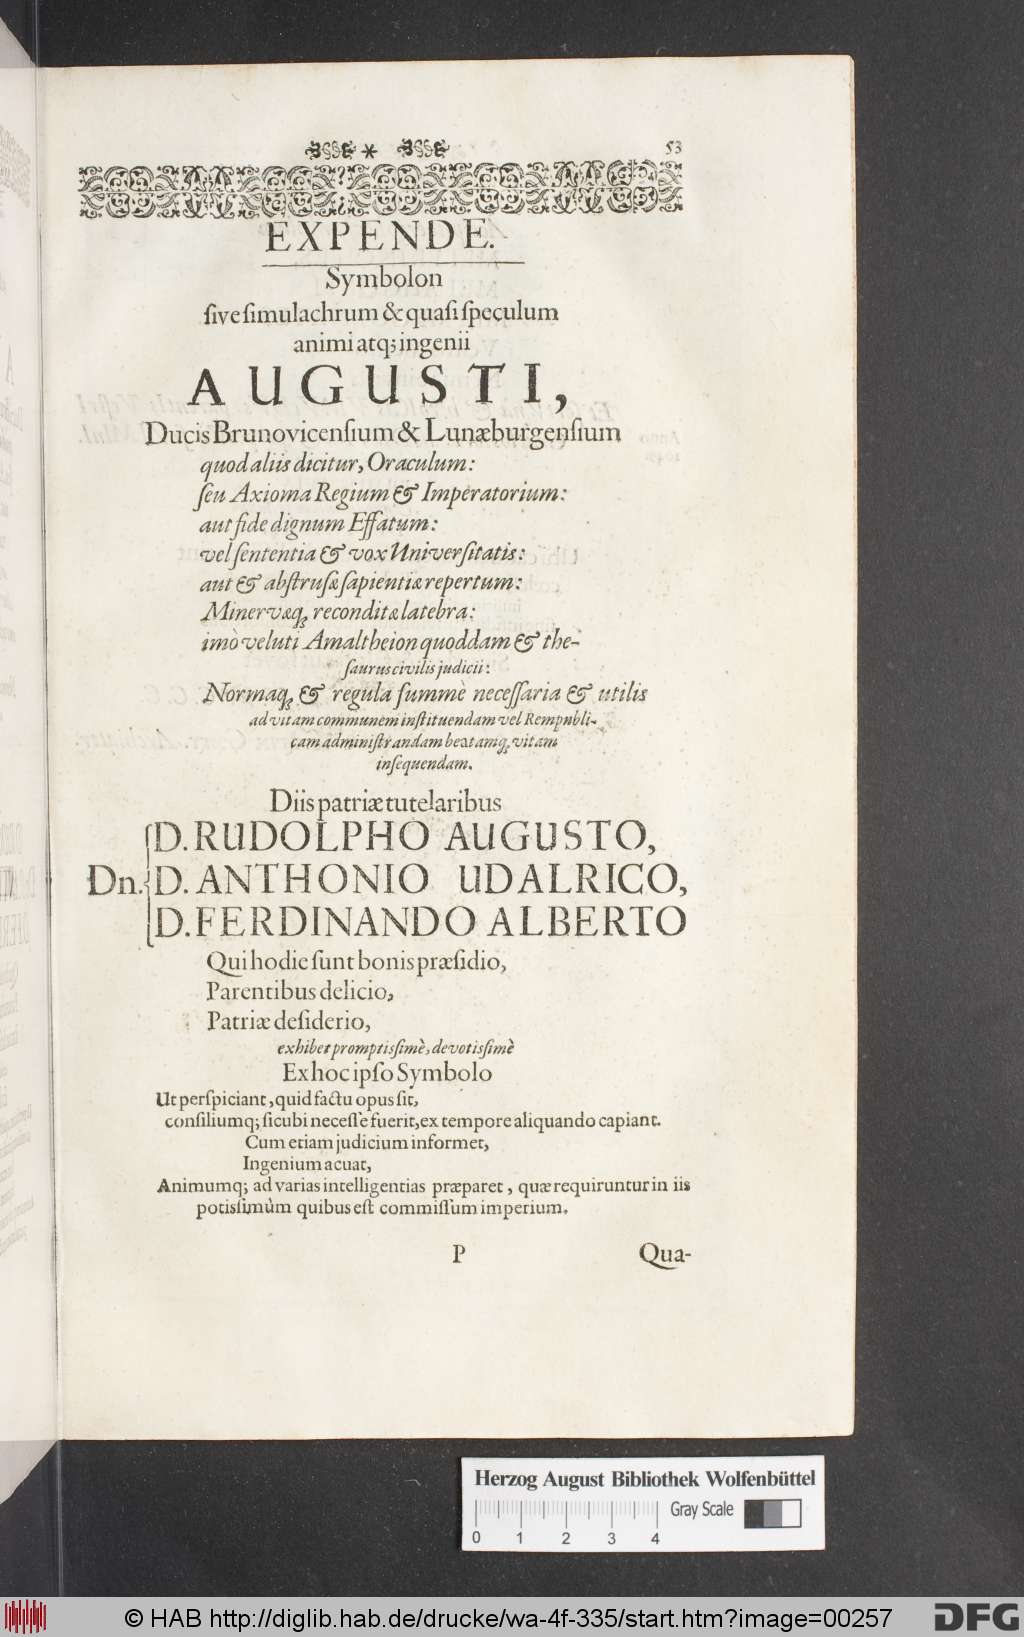 53
EXPENDE.
Symbolon
sive simulachrum & quasi speculum
animi atq; ingenii
AUGUSTI,
Ducis Brunovicensium & Lunæburgensium
quod aliis dicitur, Oraculum:
seu Axioma Regium & Imperatorium:
aut fide dignum Effatum:
vel sententia & vox Universitatis:
aut & abstrusæ sapientiæ repertum:
Minervæq; reconditæ latebra:
imò veluti Amaltheion quoddam & the-
saurus civilis judicii:
Normaq; & regula summè necessaria & utilis
ad vitam communem instituendam vel Rempnbli-
cam administrandam beatamq; vitam
insequendam.
Diis patriæ tutelaribus
D. RUDOLPHO AUGUSTO,
Dn. D. ANTHONIO UDALRICO,
D. FERDINANDO ALBERTO
Qui hodie sunt bonis præsidio,
Parentibus delicio,
Patriæ desiderio,
exhibet promptissimè, devotissimè
Ex hoc ipso Symbolo
Ut perspiciant, quid factu opus sit,
consiliumq; sicubi necesse fuerit, ex tempore aliquando capiant.
Cum etiam judicium informet,
Ingenium acuat,
Animumq; ad varias intelligentias præparet, quæ requiruntur in iis
potissimùm quibus est commissum imperium.
P Qua-
Herzog August Bibliothek Wolfenbüttel
Gray Scale
0 1 2 3 4
© HAB http://diglib.hab.de/drucke/wa-4f-335/start.htm?image=00257
DFG